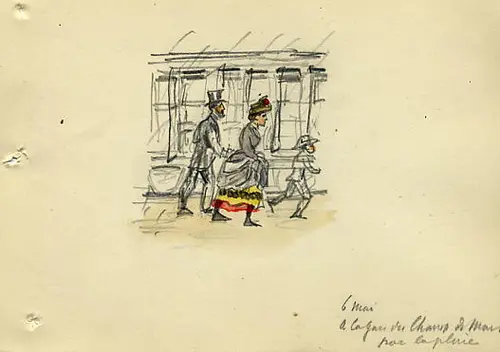 6 mai
A la gare du Champ de Mars
par la pluie